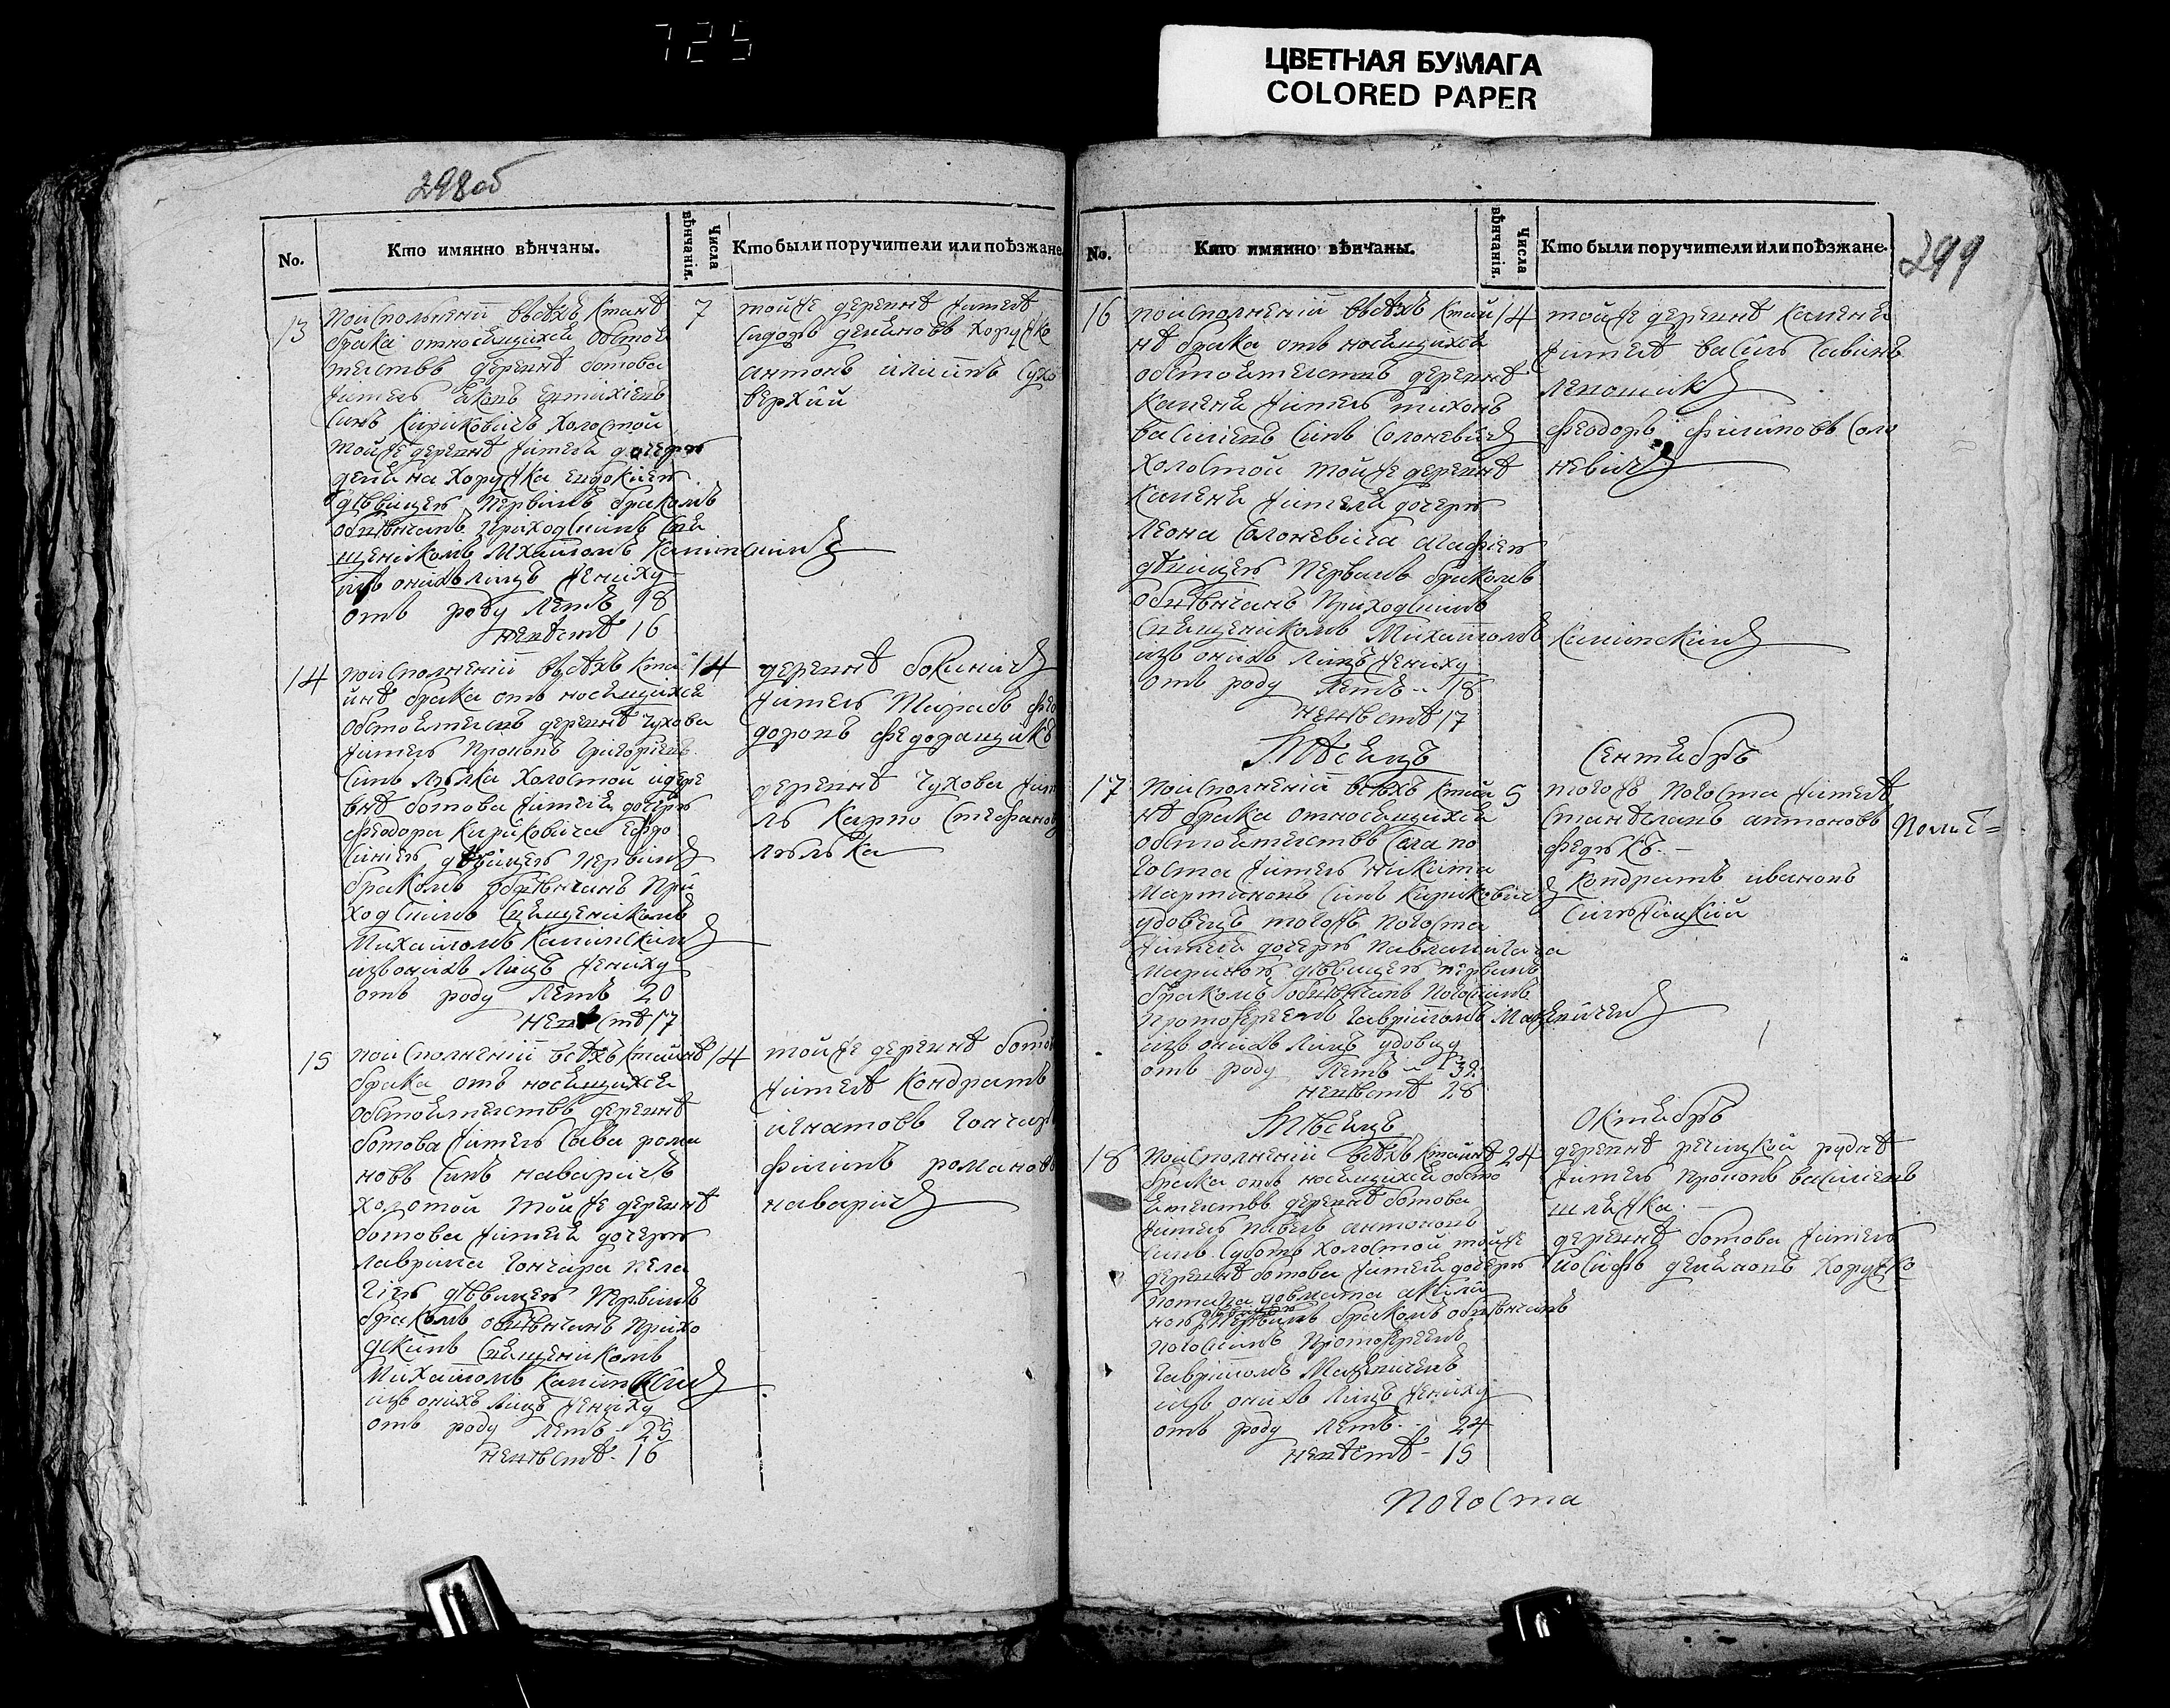 725
ЦВЕТНАЯ БУМАГА
COLORED PAPER
298об
No.
Кто имянно вѣнчаны.
Числа вѣнчанія.
Кто были поручители или поѣзжане
13
по исполненіи всѣхъ к тайнѣ
брака относящихся обстоя
телствъ деревнѣ ботова
житель
синъ Кириковичъ холостой
тойже деревнѣ жителя дочерю
демяна Хоружка евдокиею
дѣвицею первимъ бракомъ
обвѣнчанъ приходскимъ свя
щеникомъ Михаиломъ
изъ онихъ лицъ жениху
отъ роду летъ 18
невѣстѣ 16
7
тойже деревнѣ жителѣ
сидоръ демяновъ хоружко
антонъ илиинъ сухо
верхий
14
по исполненіи всѣхъ к та
йнѣ брака отъ носящихся
обстоятелствъ деревнѣ чухова
житель прокопъ григориевъ
синъ лялка холостой и дере
внѣ ботова жителя дочерю
феодора Кириковича
дѣвицею первимъ
бракомъ обвѣнчанъ при
ходскимъ священикомъ
Михаиломъ
изъ онихъ лицъ жениху
отъ роду летъ 20
невѣстѣ 17
14
деревнѣ
житель фео
доровъ
деревнѣ чухова жите
ль карпо стефанов
лялка
15
по исполненіи всѣхъ к тайнѣ
брака отъ носящихся
обстоятелствъ деревнѣ
ботова житель сава рома
новъ синъ наваричъ
холостой тойже деревнѣ
ботова жителя дочерю
лаврина гончара пела
гіею дѣвицею первимъ
бракомъ обвѣнчанъ прихо
дскимъ священикомъ
Михаиломъ
изъ онихъ лицъ жениху
отъ роду летъ - 25
невѣстѣ - 16
14
тойже деревнѣ бото
жителѣ кондратъ
игнатовъ гончар
филипъ романовъ
наваричъ
299
No.
Кто имянно вѣнчаны.
Числа вѣнчанія.
Кто были поручители или поѣзжане.
16
по исполненіи всѣхъ к тай
нѣ брака отъ носящихся
обстоятелствъ деревнѣ
каменя житель тихонъ
василиевъ синъ солоневичъ
холостой тойже деревнѣ
каменя жителя дочерю
леона солоневича агафиею
дѣвицею первимъ бракомъ
обвѣнчанъ приходскимъ
священикомъ Михаиломъ
изъ онихъ лицъ жениху
отъ роду летъ - 18
невѣстѣ 17
14
тойже деревнѣ каменя
жителѣ василь савинъ
феодоръ филиповъ соло
невичъ
Мѣсяцъ Сентябръ
17
по исполненіи всѣхъ к тай
нѣ брака относящихся
обстоятелствъ села по
госта житель никита
мартиновъ синъ кириковичъ
удовецъ тогожъ погоста
жителя дочерю павла
мариною дѣвицею первимъ
бракомъ обвѣнчанъ погостскимъ
протоиереемъ гавріиломъ
изъ онихъ лицъ удовцу
отъ роду летъ - 32
невѣстѣ 28
5
тогожъ погоста жителѣ
станѣславъ антоновъ
кондратъ ивановъ
Мѣсяцъ Октябръ
18
по исполненіи всѣхъ к тайнѣ
брака отъ носящихся обсто
ятелствъ деревнѣ ботова
житель павелъ антоновъ
синъ суботъ холостой тойже
деревнѣ ботова жителя дочерю
потапа довмата акили
ною дѣвицею первимъ бракомъ обвѣнчанъ
погостскимъ протоиереемъ
гавріиломъ
изъ онихъ лицъ жениху
отъ роду летъ - 24
невѣстѣ - 19
24
деревнѣ речицкой рудкѣ
житель прокопъ василиевъ
деревнѣ ботова житель
иосифъ демяновъ хоружко
погоста